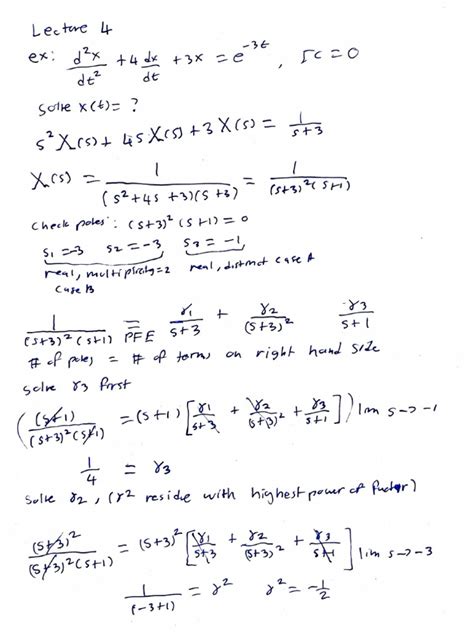 Lecture 4
ex: d²x/dt² + 4 dx/dt + 3x = e^-3t, IC = 0
solve x(t) = ?
s² X(s) + 4s X(s) + 3 X(s) = 1/(s+3)
X(s) = 1/((s²+4s+3)(s+3)) = 1/((s+3)²(s+1))
check poles: (s+3)²(s+1) = 0
s₁=-3 s₂=-3, s₃=-1,
real, multiplicity=2 real, distinct case A
case B
1/((s+3)²(s+1)) = PFE γ₁/(s+3) + γ₂/(s+3)² γ₃/(s+1)
# of poles = # of terms on right hand side
solve γ₃ first
((s+1)/((s+3)²(s+1)) = (s+1)[γ₁/(s+3) + γ₂/(s+3)² + γ₃/(s+1)]) lim s→-1
1/4 = γ₃
solve γ₂, (γ² residue with highest power of factor)
(s+3)²/((s+3)²(s+1)) = (s+3)²[γ₁/(s+3) + γ₂/(s+3)² + γ₃/(s+1)] lim s→-3
1/(-3+1) = γ² γ²=-1/2